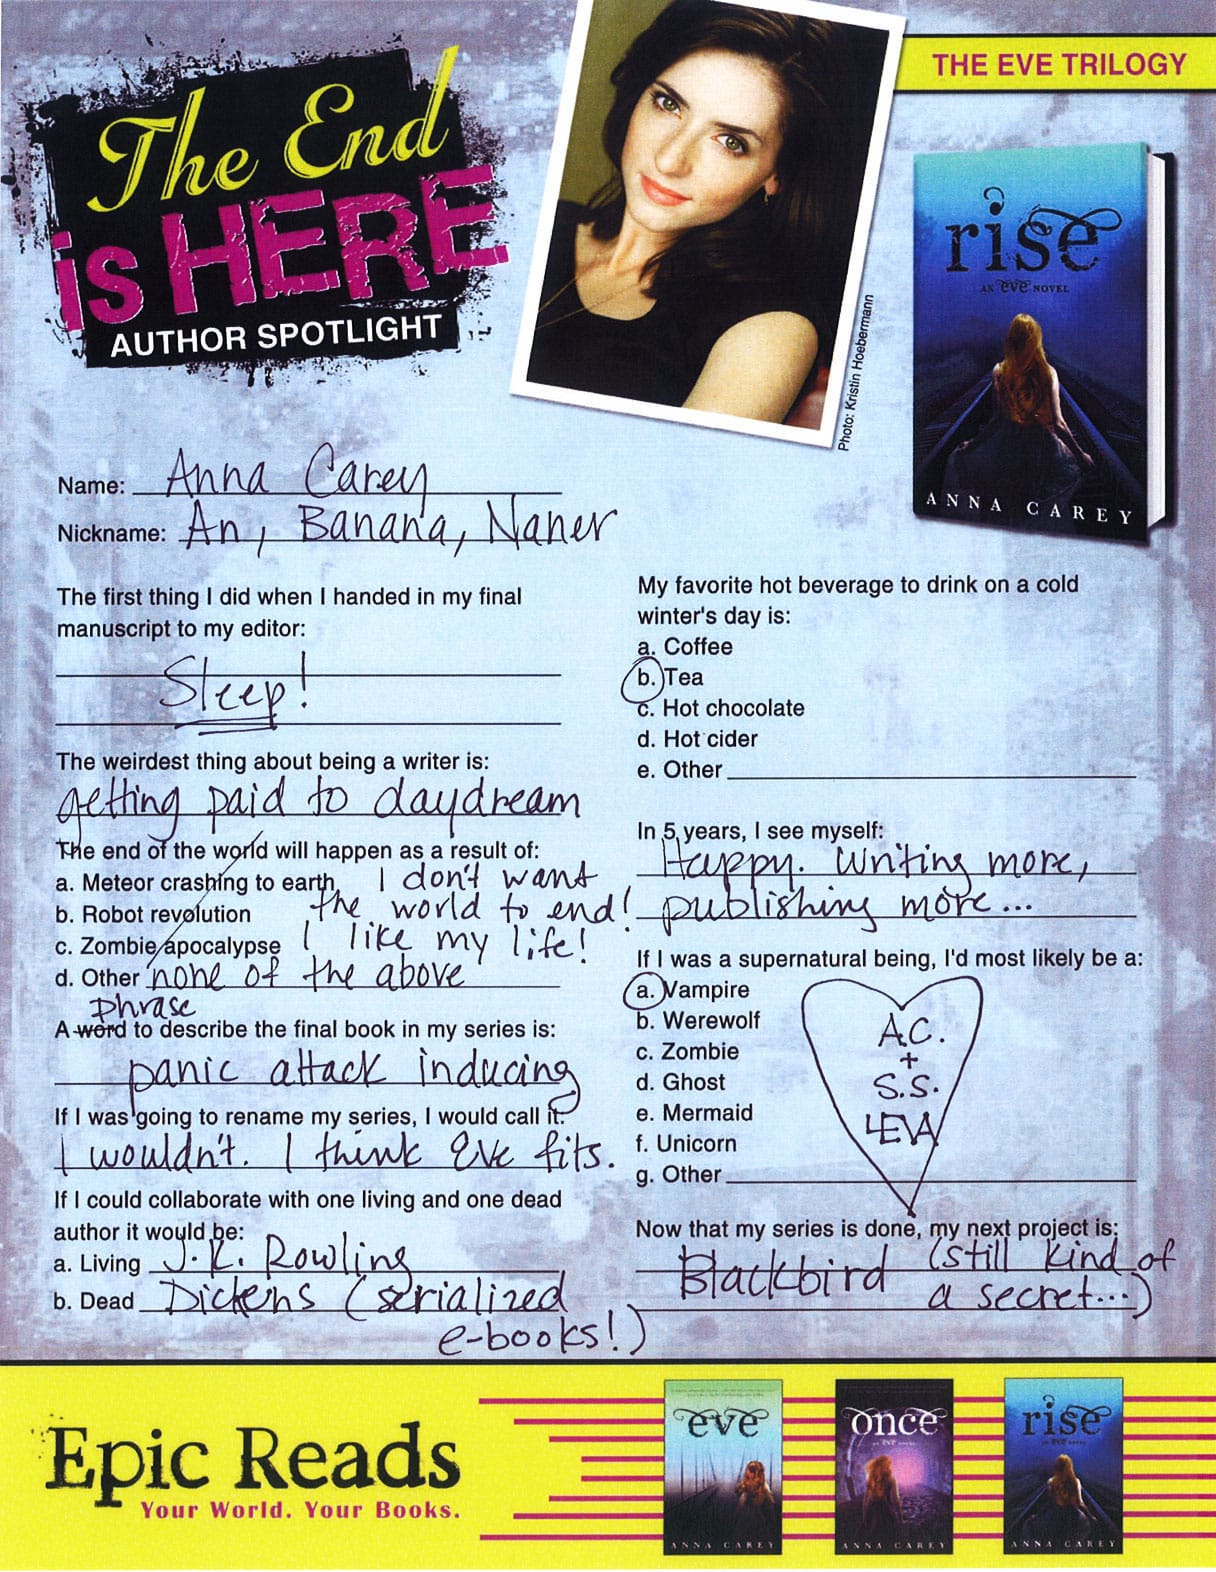 The End
is HERE
AUTHOR SPOTLIGHT
THE EVE TRILOGY
rise
AN eve NOVEL
ANNA CAREY
Photo: Kristin Hoebermann
Name: Anna Carey
Nickname: An, Banana, Naner
The first thing I did when I handed in my final
manuscript to my editor:
Sleep!
The weirdest thing about being a writer is:
getting paid to daydream
The end of the world will happen as a result of:
a. Meteor crashing to earth I don't want
b. Robot revolution the world to end!
c. Zombie apocalypse I like my life!
d. Other none of the above
phrase
A word to describe the final book in my series is:
panic attack inducing
If I was going to rename my series, I would call it:
I wouldn't. I think Eve fits.
If I could collaborate with one living and one dead
author it would be:
a. Living J.K. Rowling
b. Dead Dickens (serialized
e-books!)
My favorite hot beverage to drink on a cold
winter's day is:
a. Coffee
b. Tea
c. Hot chocolate
d. Hot cider
e. Other
In 5 years, I see myself:
Happy. Writing more,
publishing more...
If I was a supernatural being, I'd most likely be a:
a. Vampire
b. Werewolf
c. Zombie
d. Ghost
e. Mermaid
f. Unicorn
g. Other
A.C.
+
S.S.
4EVA
Now that my series is done, my next project is:
Blackbird (still kind of
a secret...)
Epic Reads
Your World. Your Books.
eve
ANNA CAREY
once
AN eve NOVEL
ANNA CAREY
rise
AN eve NOVEL
ANNA CAREY